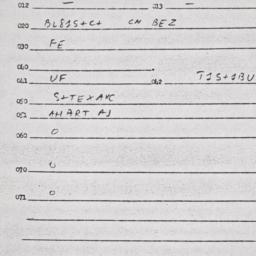 012 — 013 —
020 BL815+C+ CN BEZ
030 FE
040
041 UF 042 T15+1BU
050 S+TEXAVC
052 AHART AJ
060 0
070 0
071 0